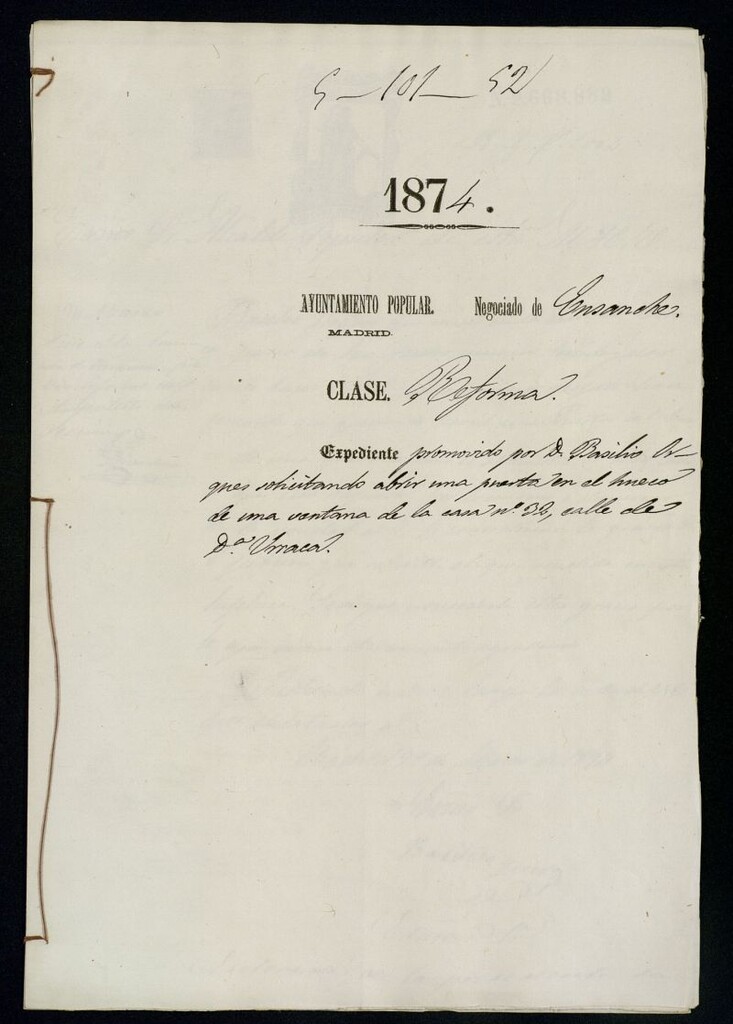 5-101-52
1874.
AYUNTAMIENTO POPULAR. Negociado de Ensanche.
MADRID.
CLASE. Reforma.
Expediente promovido por D. Basilio Ar-
ques solicitando abrir una puerta en el hueco
de una ventana de la casa nº. 32, calle de
Dª. Urraca.